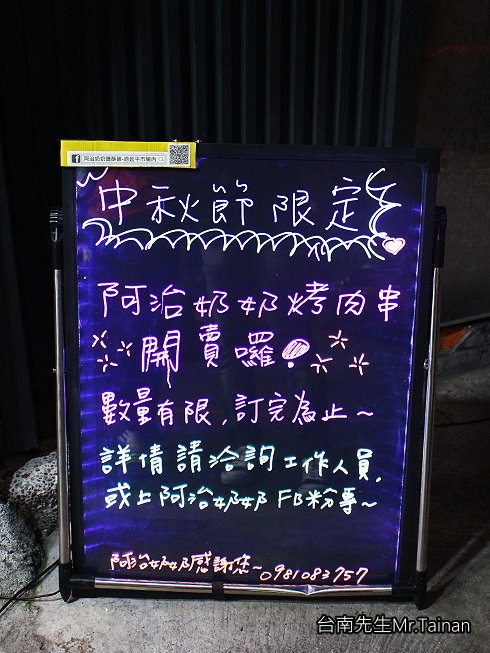 阿治奶奶鹽酥雞-原乾平市場內
中秋節限定
阿治奶奶烤肉串
開賣囉!
數量有限,訂完為止~
詳情請洽詢工作人員,
或上阿治奶奶FB粉專~
阿治奶奶感謝您~0981083757
台南先生Mr.Tainan